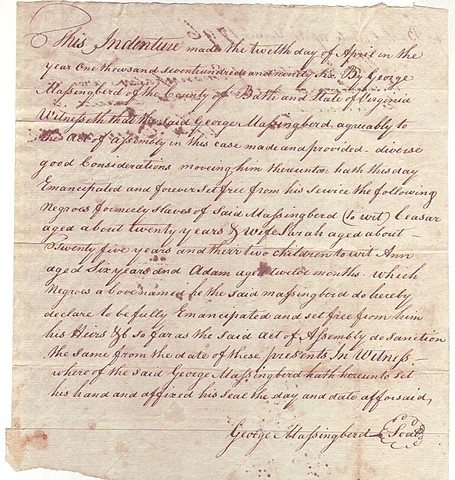 This Indenture made the twelth day of April in the
year One thousand seventeen hundred and ninety Six By George
Massingberd of the County of Bath and State of Virginia
Witnesseth that the said George Massingberd agreeably to
the act of assembly in this case made and provided diverse
good Considerations moving him thereunto hath this day
Emancipated and forever set free from his service the following
Negroes formerly slaves of said Massingberd (to wit) Ceasar
aged about twenty years & Wife Sarah aged about
Twenty five years and their two children to wit Ann
aged Six years and Adam aged twelve months which
Negroes above named he the said massingberd do hereby
declare to be fully Emancipated and set free from him
his Heirs &c so far as the said Act of Assembly do Sanction
the same from the date of these presents In Witness
where of the said George Massingberd hath hereunto set
his hand and affixed his seal the day and date afforsaid,
George Massingberd Seal